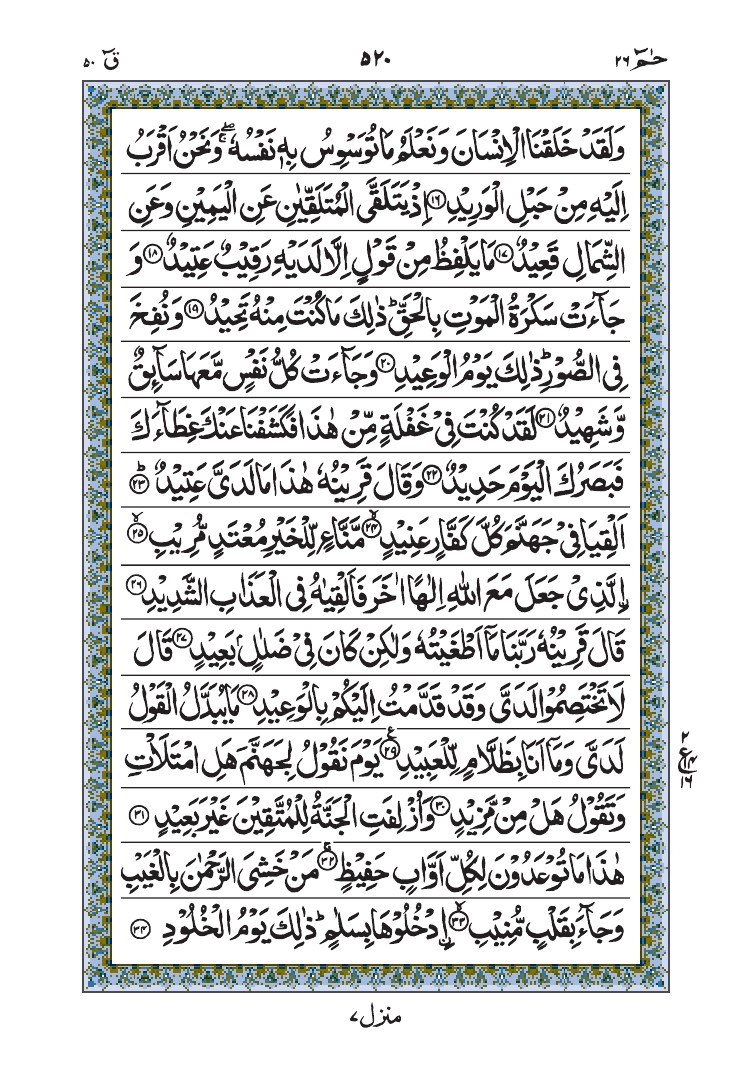 حٰمٓ ٢٦ ٥٢٠ قٓ ٥٠
وَلَقَدْ خَلَقْنَا الْاِنْسَانَ وَنَعْلَمُ مَا تُوَسْوِسُ بِهٖ نَفْسُهٗ ۖۚ وَنَحْنُ اَقْرَبُ
اِلَيْهِ مِنْ حَبْلِ الْوَرِيْدِ ۝١٦ اِذْ يَتَلَقَّى الْمُتَلَقِّيٰنِ عَنِ الْيَمِيْنِ وَعَنِ
الشِّمَالِ قَعِيْدٌ ۝١٧ مَا يَلْفِظُ مِنْ قَوْلٍ اِلَّا لَدَيْهِ رَقِيْبٌ عَتِيْدٌ ۝١٨ وَ
جَآءَتْ سَكْرَةُ الْمَوْتِ بِالْحَقِّ ؕ ذٰلِكَ مَا كُنْتَ مِنْهُ تَحِيْدُ ۝١٩ وَنُفِخَ
فِى الصُّوْرِ ؕ ذٰلِكَ يَوْمُ الْوَعِيْدِ ۝٢٠ وَجَآءَتْ كُلُّ نَفْسٍ مَّعَهَا سَآئِقٌ
وَّشَهِيْدٌ ۝٢١ لَقَدْ كُنْتَ فِىْ غَفْلَةٍ مِّنْ هٰذَا فَكَشَفْنَا عَنْكَ غِطَآءَكَ
فَبَصَرُكَ الْيَوْمَ حَدِيْدٌ ۝٢٢ وَقَالَ قَرِيْنُهٗ هٰذَا مَا لَدَىَّ عَتِيْدٌ ؕ ۝٢٣
اَلْقِيَا فِىْ جَهَنَّمَ كُلَّ كَفَّارٍ عَنِيْدٍ ۙ ۝٢٤ مَّنَّاعٍ لِّلْخَيْرِ مُعْتَدٍ مُّرِيْبِ ۙ ۝٢٥
اِۨلَّذِىْ جَعَلَ مَعَ اللّٰهِ اِلٰهًا اٰخَرَ فَاَلْقِيٰهُ فِى الْعَذَابِ الشَّدِيْدِ ۝٢٦
قَالَ قَرِيْنُهٗ رَبَّنَا مَاۤ اَطْغَيْتُهٗ وَلٰكِنْ كَانَ فِىْ ضَلٰلٍۢ بَعِيْدٍ ۝٢٧ قَالَ
لَا تَخْتَصِمُوْا لَدَىَّ وَقَدْ قَدَّمْتُ اِلَيْكُمْ بِالْوَعِيْدِ ۝٢٨ مَا يُبَدَّلُ الْقَوْلُ
لَدَىَّ وَمَاۤ اَنَا بِظَلَّامٍ لِّلْعَبِيْدِ ۝٢٩ ع يَوْمَ نَقُوْلُ لِجَهَنَّمَ هَلِ امْتَلَاْتِ
وَتَقُوْلُ هَلْ مِنْ مَّزِيْدٍ ۝٣٠ وَاُزْلِفَتِ الْجَنَّةُ لِلْمُتَّقِيْنَ غَيْرَ بَعِيْدٍ ۝٣١
هٰذَا مَا تُوْعَدُوْنَ لِكُلِّ اَوَّابٍ حَفِيْظٍ ۚ ۝٣٢ مَنْ خَشِىَ الرَّحْمٰنَ بِالْغَيْبِ
وَجَآءَ بِقَلْبٍ مُّنِيْبِ ۙ ۝٣٣ اۨدْخُلُوْهَا بِسَلٰمٍ ؕ ذٰلِكَ يَوْمُ الْخُلُوْدِ ۝٣٤
٢
ع ١٤
١٦
منزل ٧